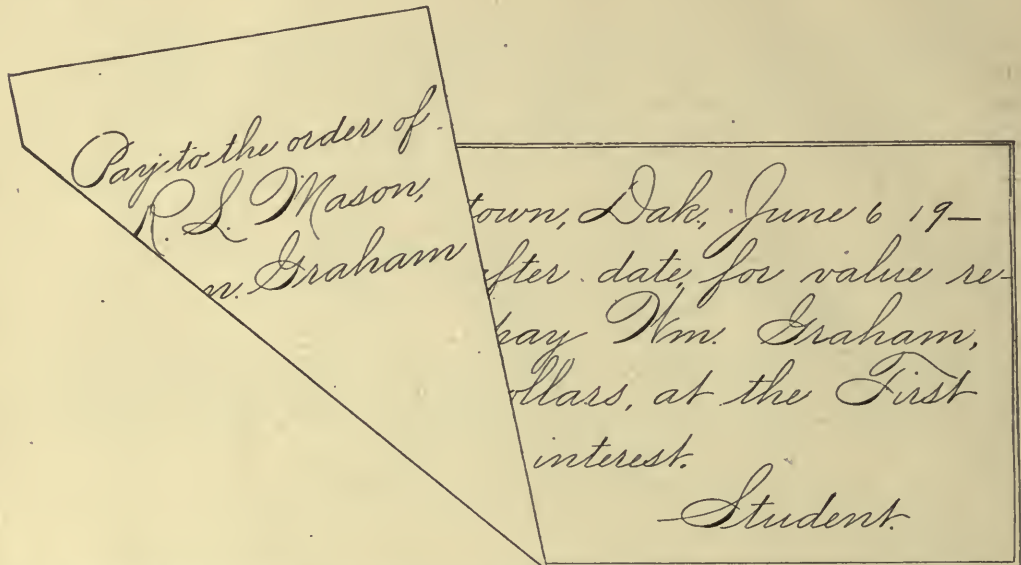 Pay to the order of
R. S. Mason,
m. Graham
town, Dak., June 6 19—
fter date, for value re-
pay Wm. Graham,
ollars, at the First
interest.
Student.